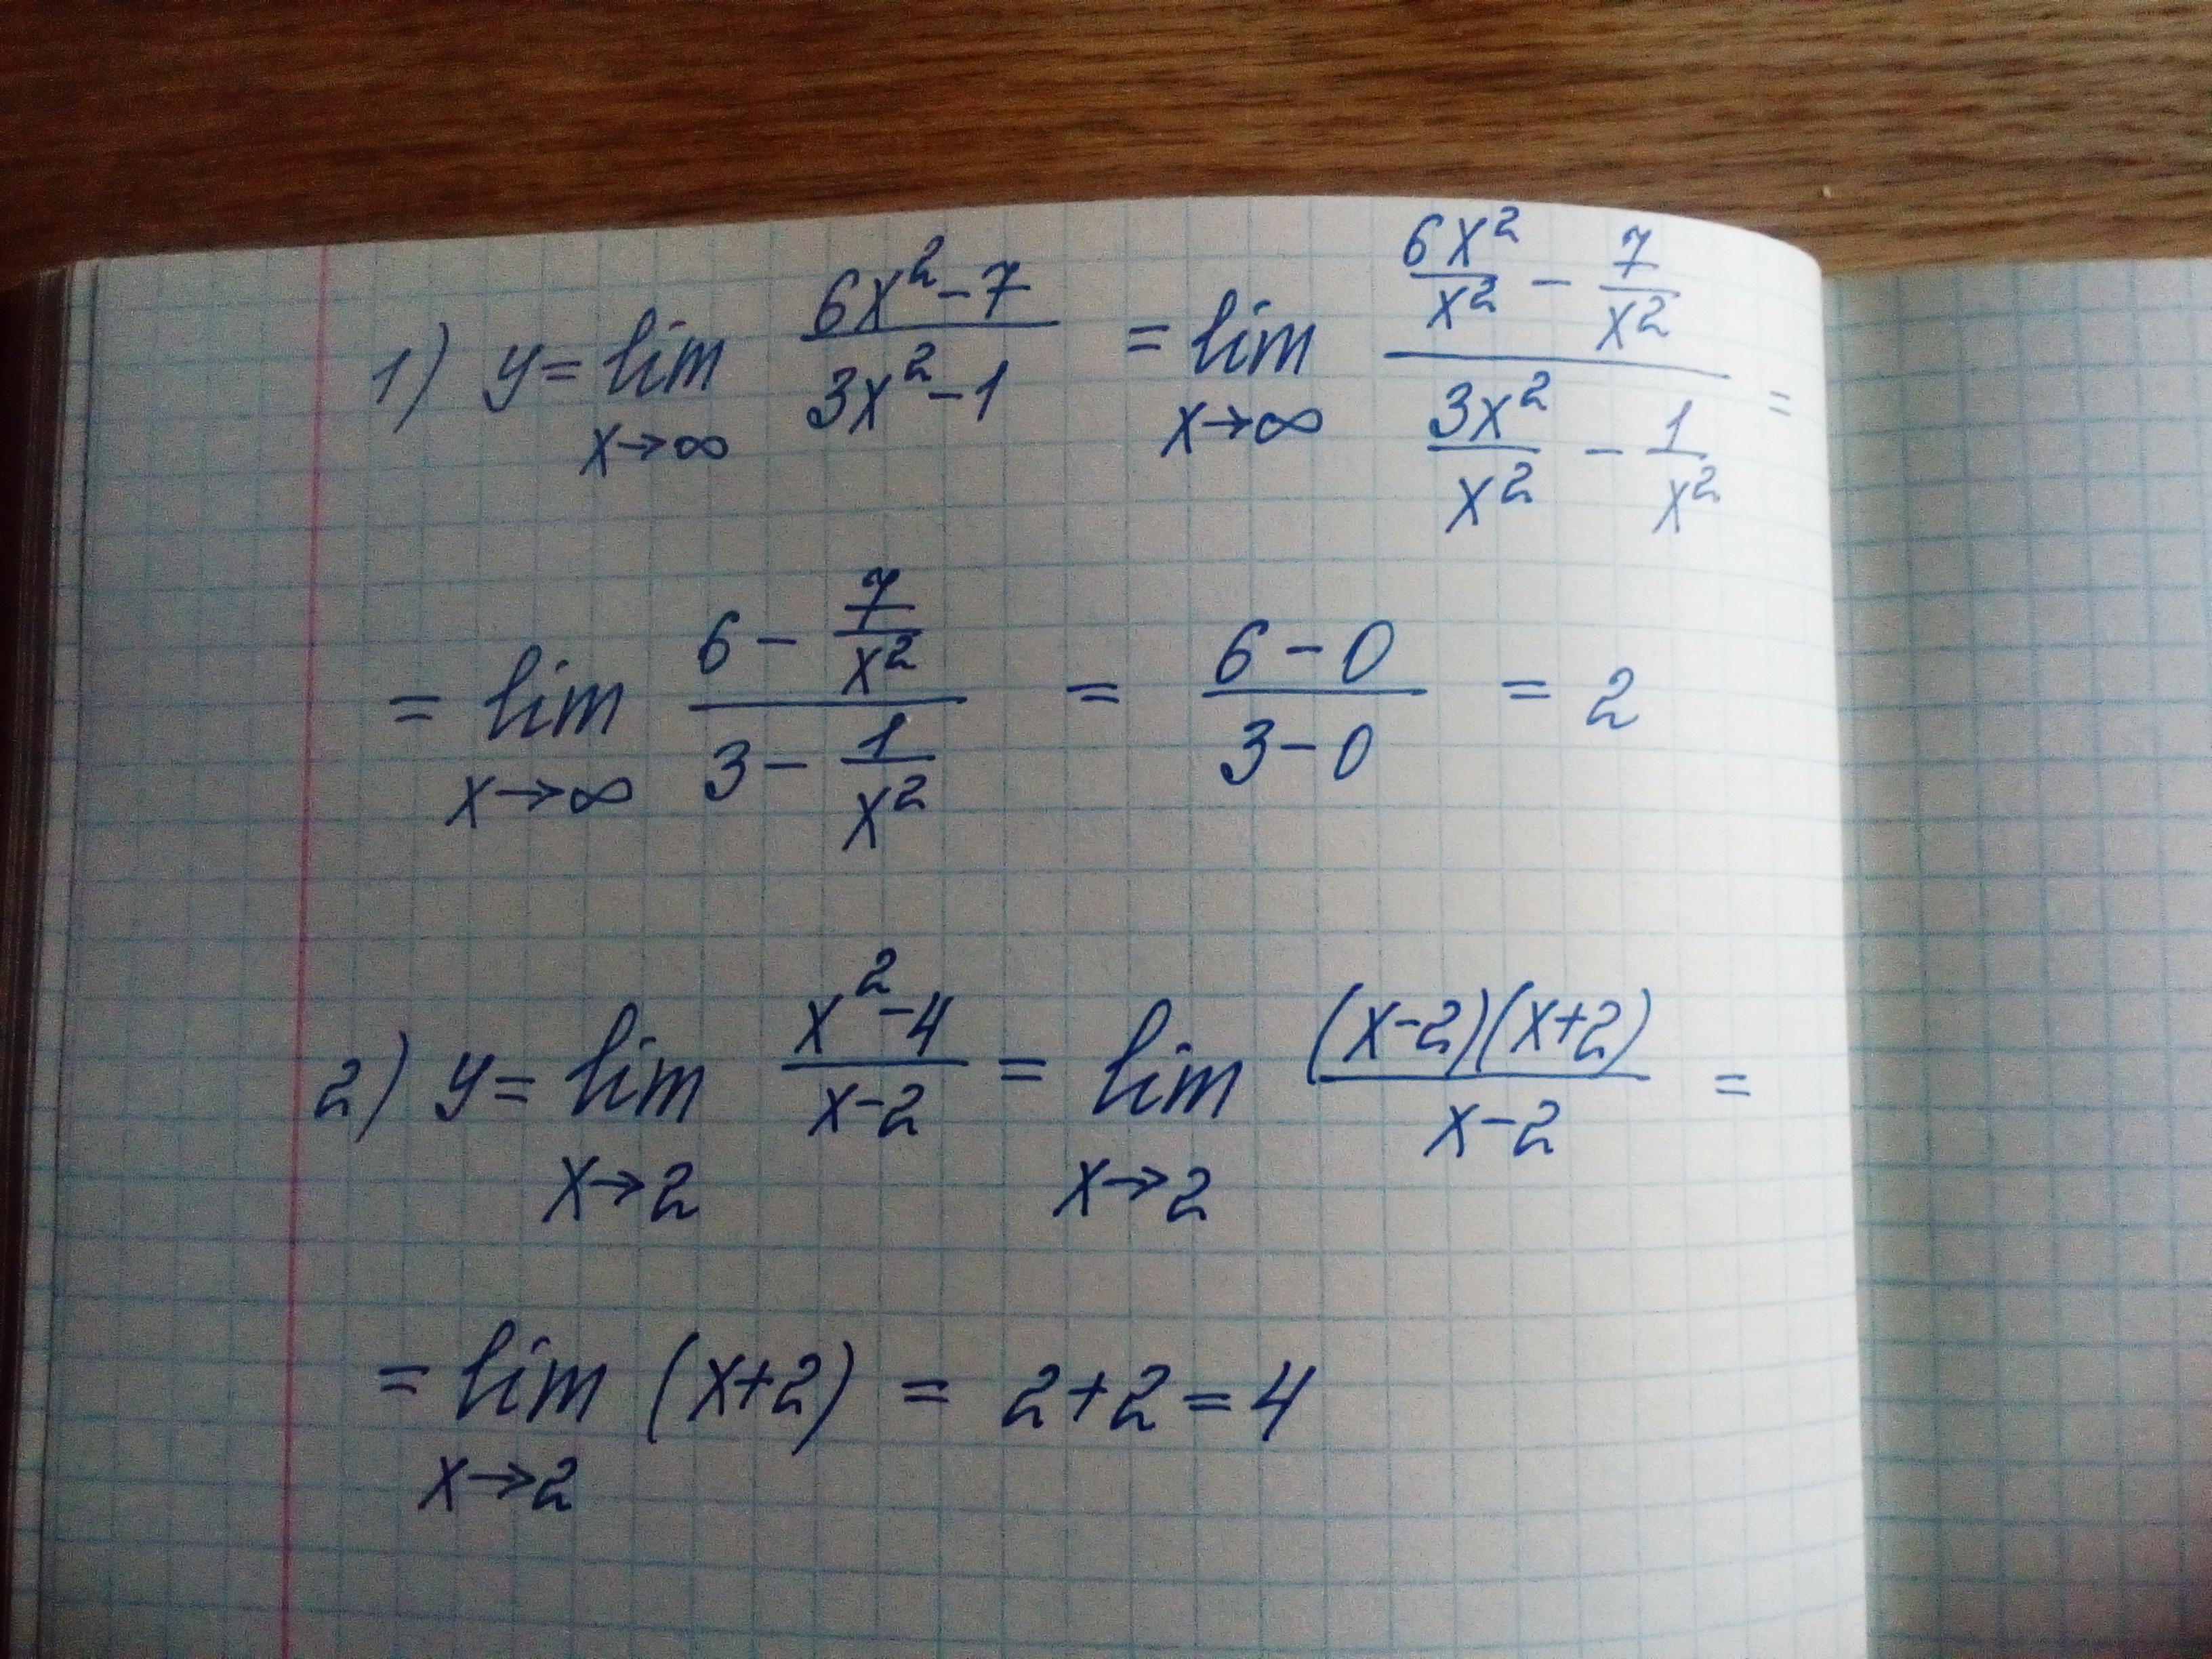 1) y = lim_{x→∞} (6x² - 7)/(3x² - 1) = lim_{x→∞} (6x²/x² - 7/x²)/(3x²/x² - 1/x²) =
= lim_{x→∞} (6 - 7/x²)/(3 - 1/x²) = (6 - 0)/(3 - 0) = 2
2) y = lim_{x→2} (x² - 4)/(x - 2) = lim_{x→2} ((x - 2)(x + 2))/(x - 2) =
= lim_{x→2} (x + 2) = 2 + 2 = 4